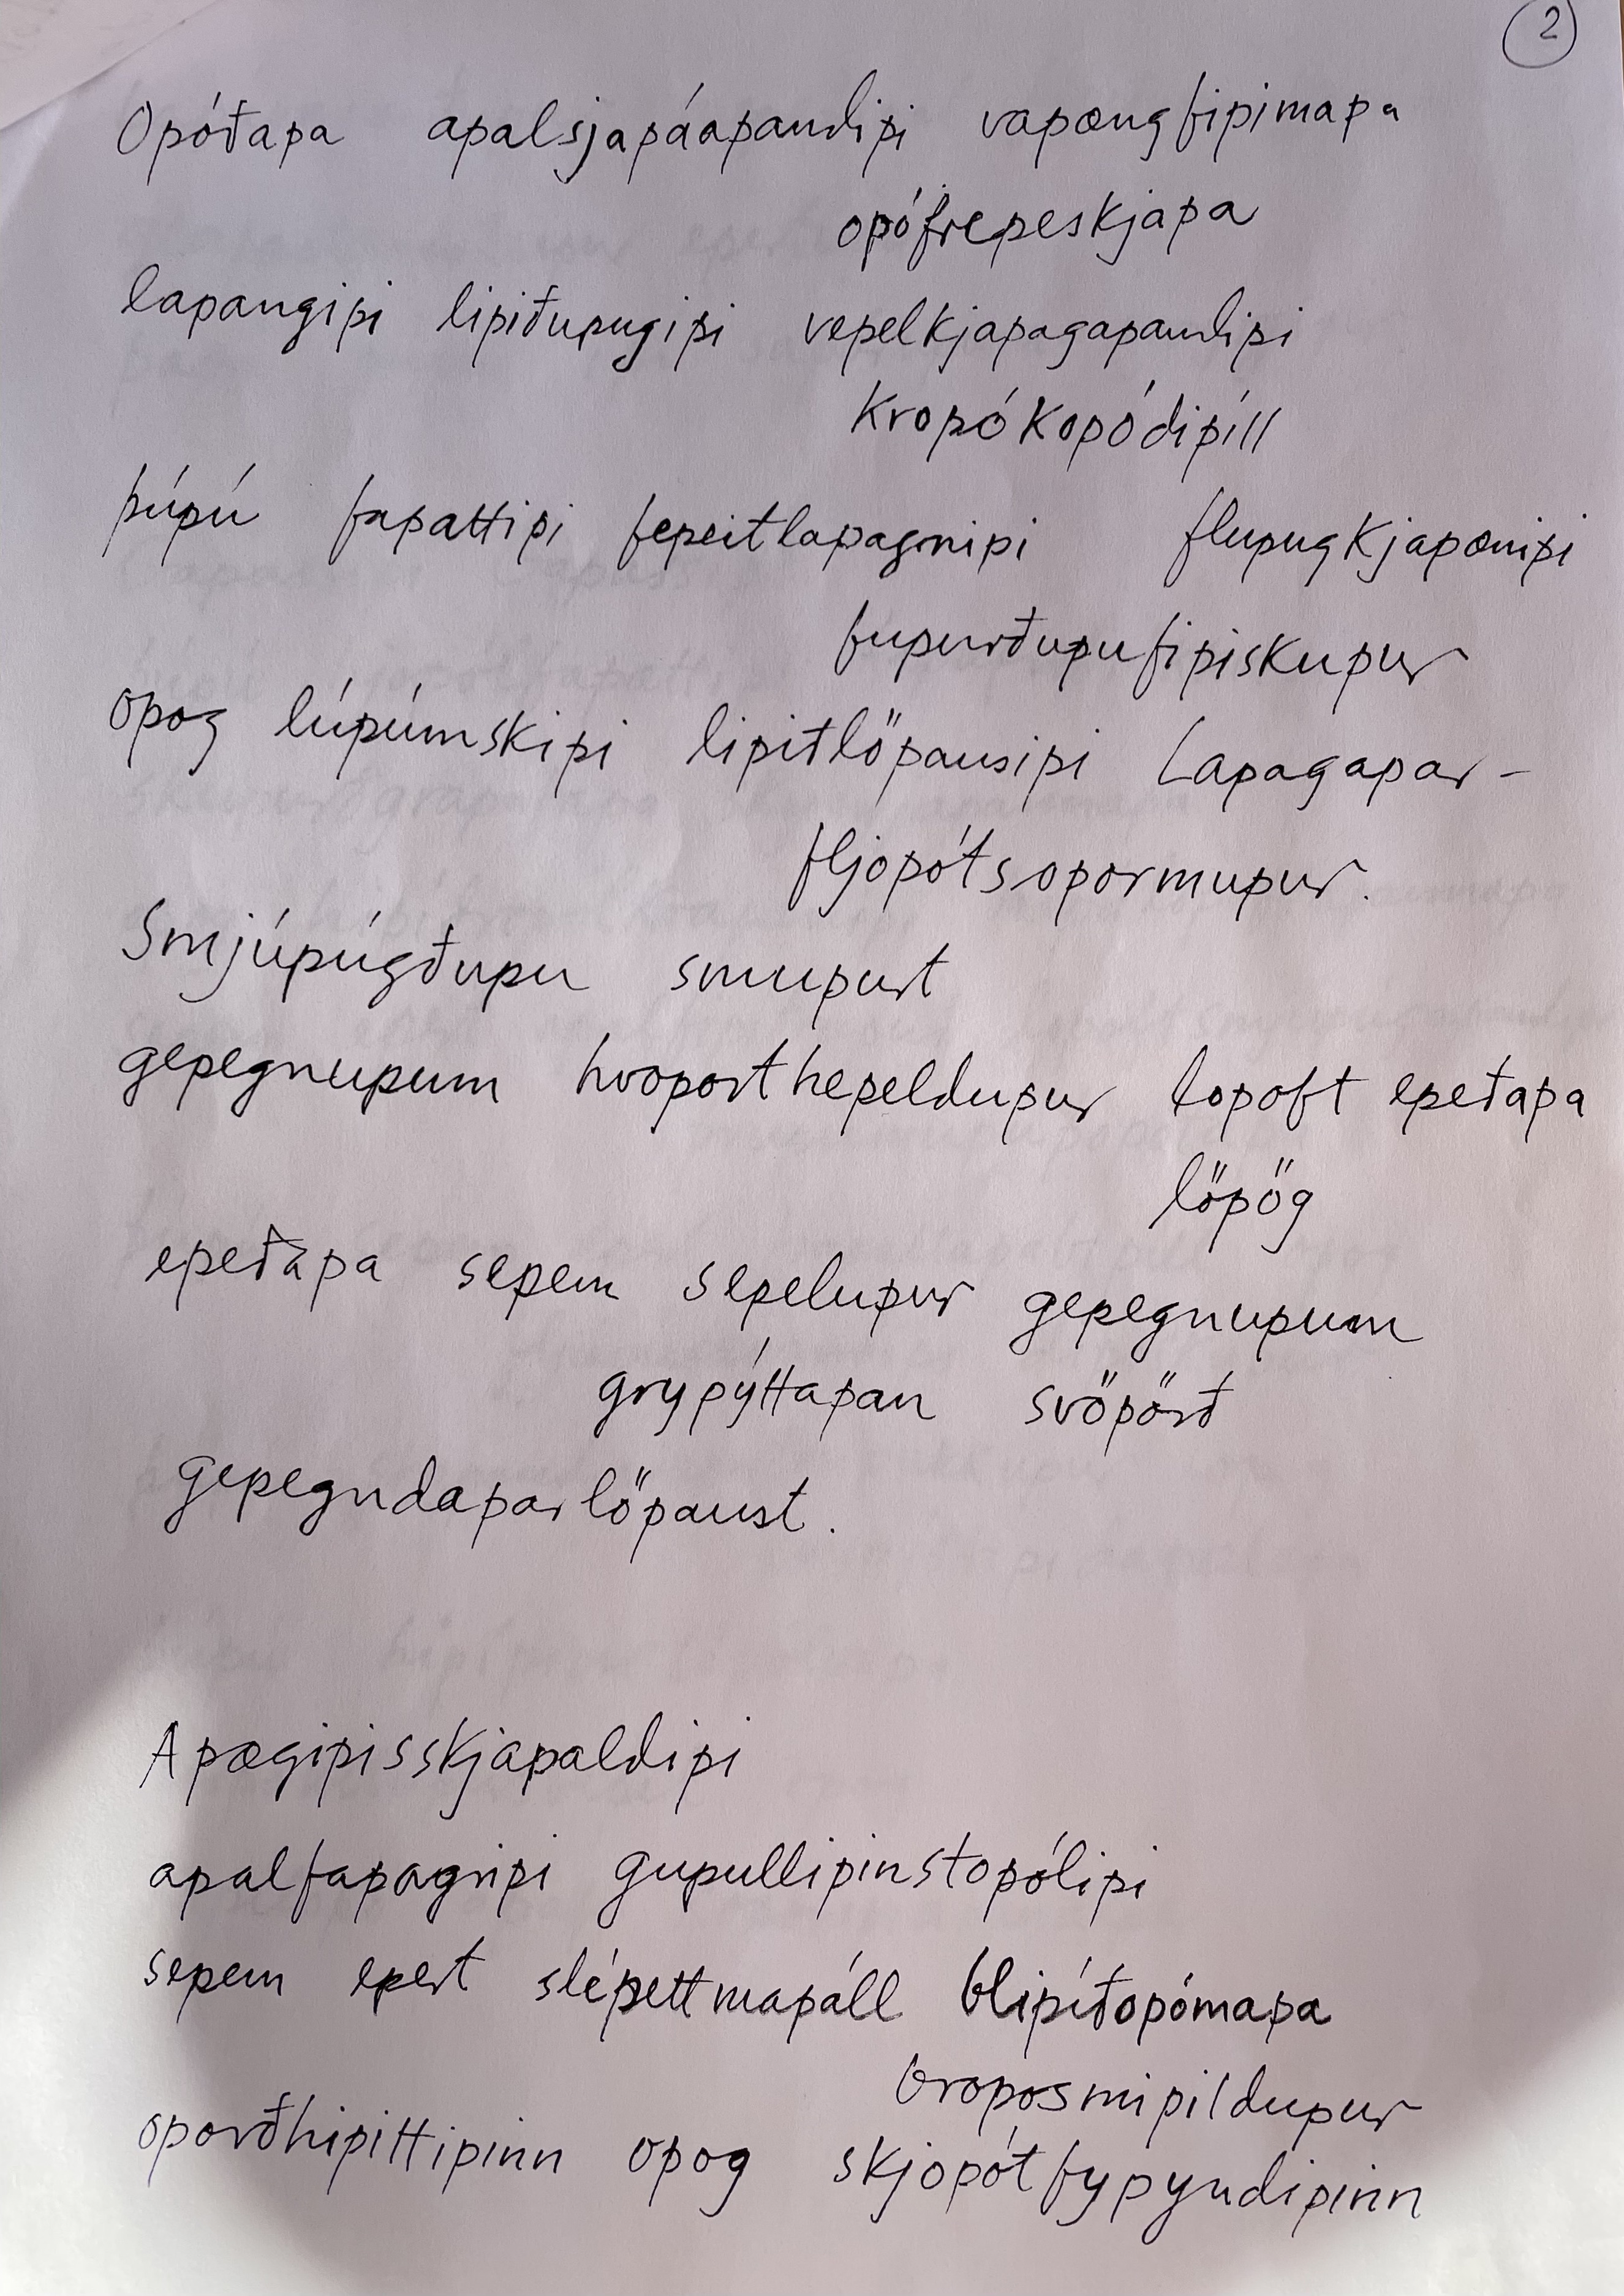 2
Opóðapa apalsjapáapandipi vapængfipimapa
opófrepeskjapa
lapangipi lipiðupugipi vepelkjapagapandipi
kropókopódipíll
þúpú fapattipi fepeitlapagnipi flupugkjapænipi
fupurðupufipiskupur
opog lúpúmskipi lipitlöpausipi Lapagapar-
fljopótsopormupur.
Smjúpúgðupu smupurt
gepegnupum hvoporthepeldupur lopoft epeðapa
löpög
epeðapa sepem sepelupur gepegnupum
grypýttapan svöpörð
gepegndaparlöpaust.
Apægipisskjapaldipi
apalfapagripi gupullipinstopólipi
sepem epert slépettmapáll blipíðopómapa
broposmipildupur
oporðhipittipinn opog skjopótfypyndipinn